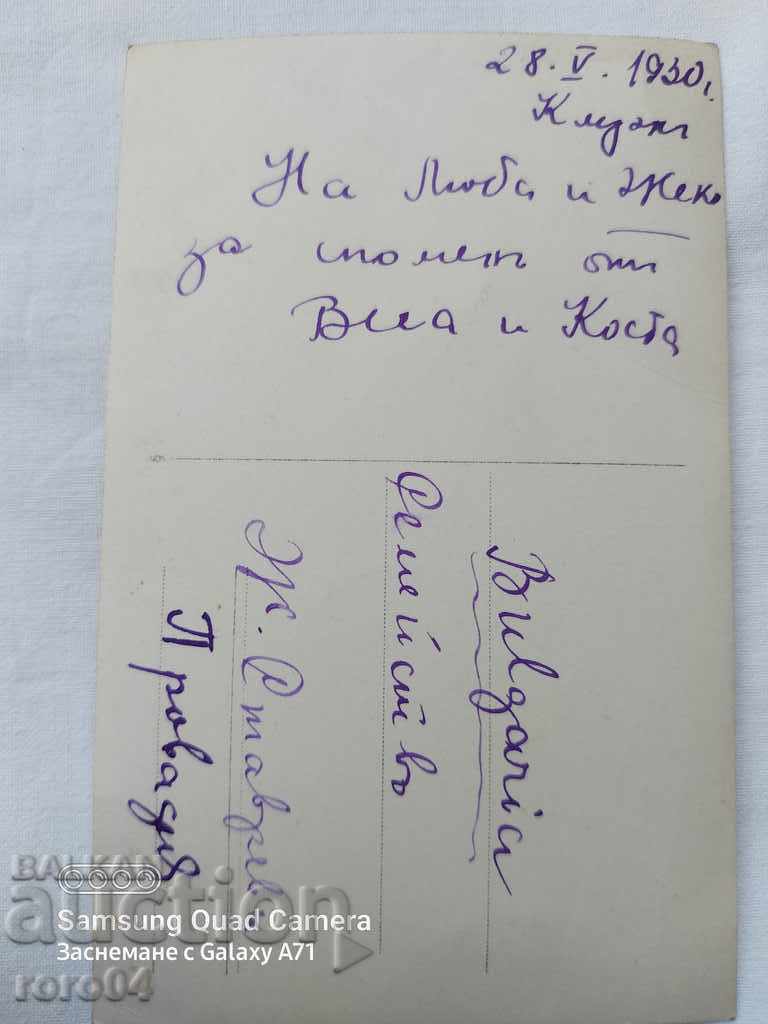 28. V. 1930 г.
Клуэнг
На Люба и Жеко
за спомен от
Виа и Коста
Bulgaria
Семейство
Ж. Ставреви
Провадия
BALKAN
auction
roro04
Samsung Quad Camera
Заснемане с Galaxy A71